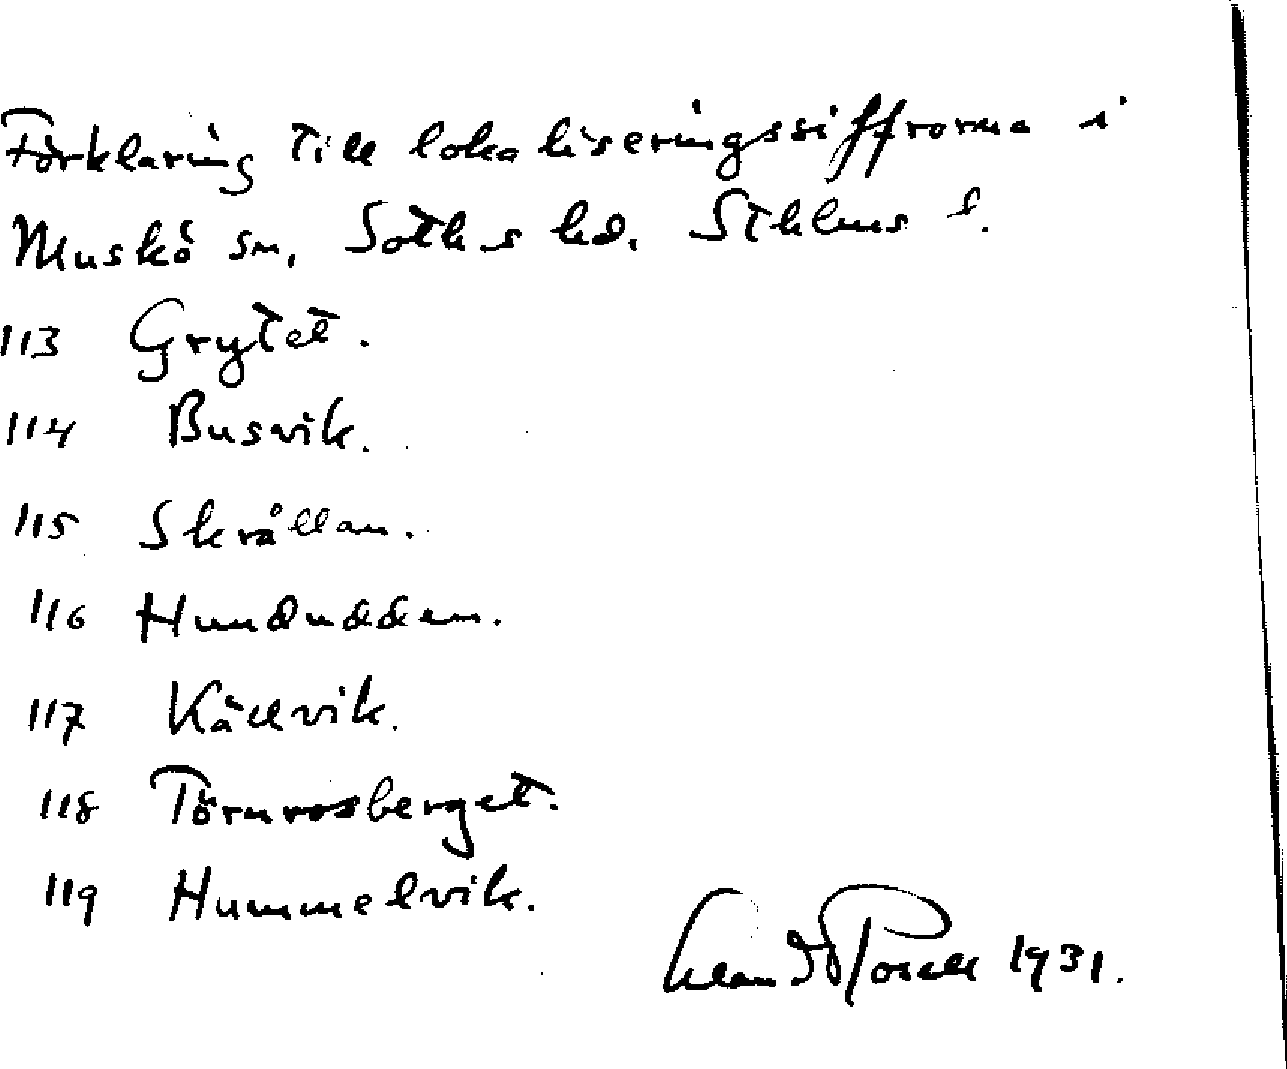 Förklaring till lokaliseringssiffrorna i
Muskö sn, Soth-s hd. Sthlms l.
113 Grytet.
114 Busvik.
115 Skrållan.
116 Hundudden.
117 Kåcvik.
118 Törnrosberget.
119 Hummelvik.
1931.